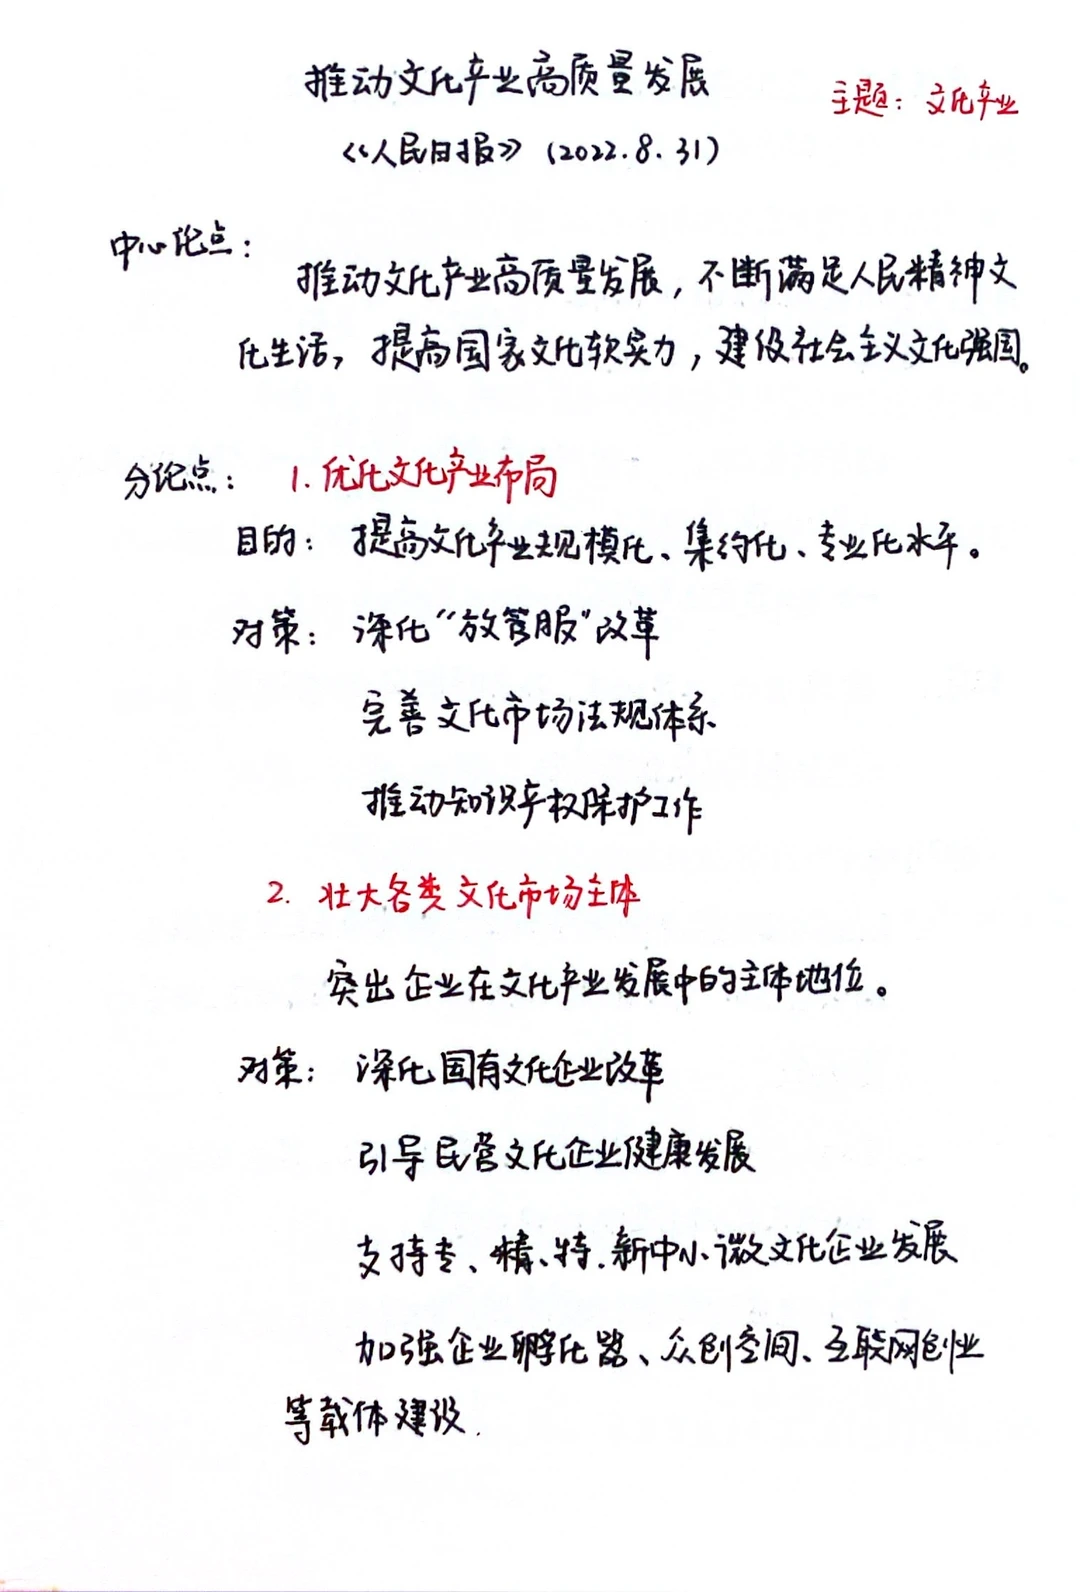 推动文化产业高质量发展
主题：文化产业
《人民日报》（2022.8.31）
中心论点：
推动文化产业高质量发展，不断满足人民精神文
化生活，提高国家文化软实力，建设社会主义文化强国。
分论点：1.优化文化产业布局
目的：提高文化产业规模化、集约化、专业化水平。
对策：深化“放管服”改革
完善文化市场法规体系
推动知识产权保护工作
2.壮大各类文化市场主体
突出企业在文化产业发展中的主体地位。
对策：深化国有文化企业改革
引导民营文化企业健康发展
支持专、精、特.新中小微文化企业发展
加强企业孵化器、众创空间、互联网创业
等载体建设.